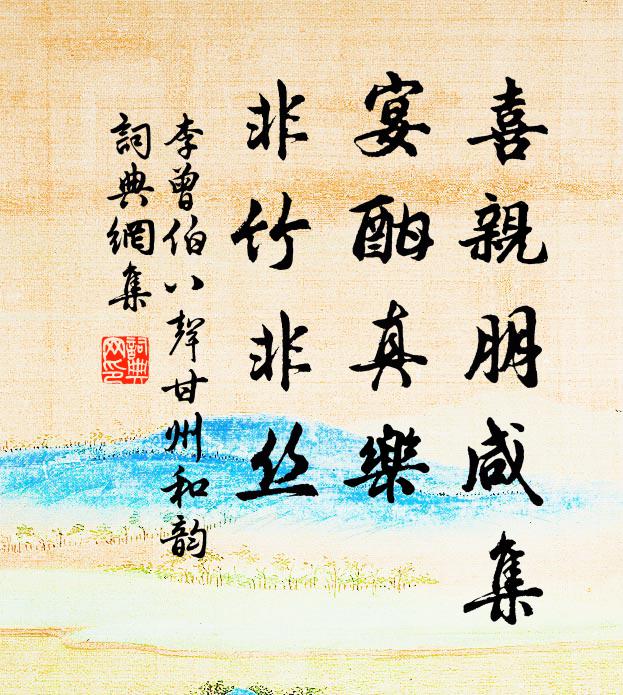 喜親朋咸集
宴酣真樂
非竹非丝
李曾伯八聲甘州和韵
詞典網集
詞典网印